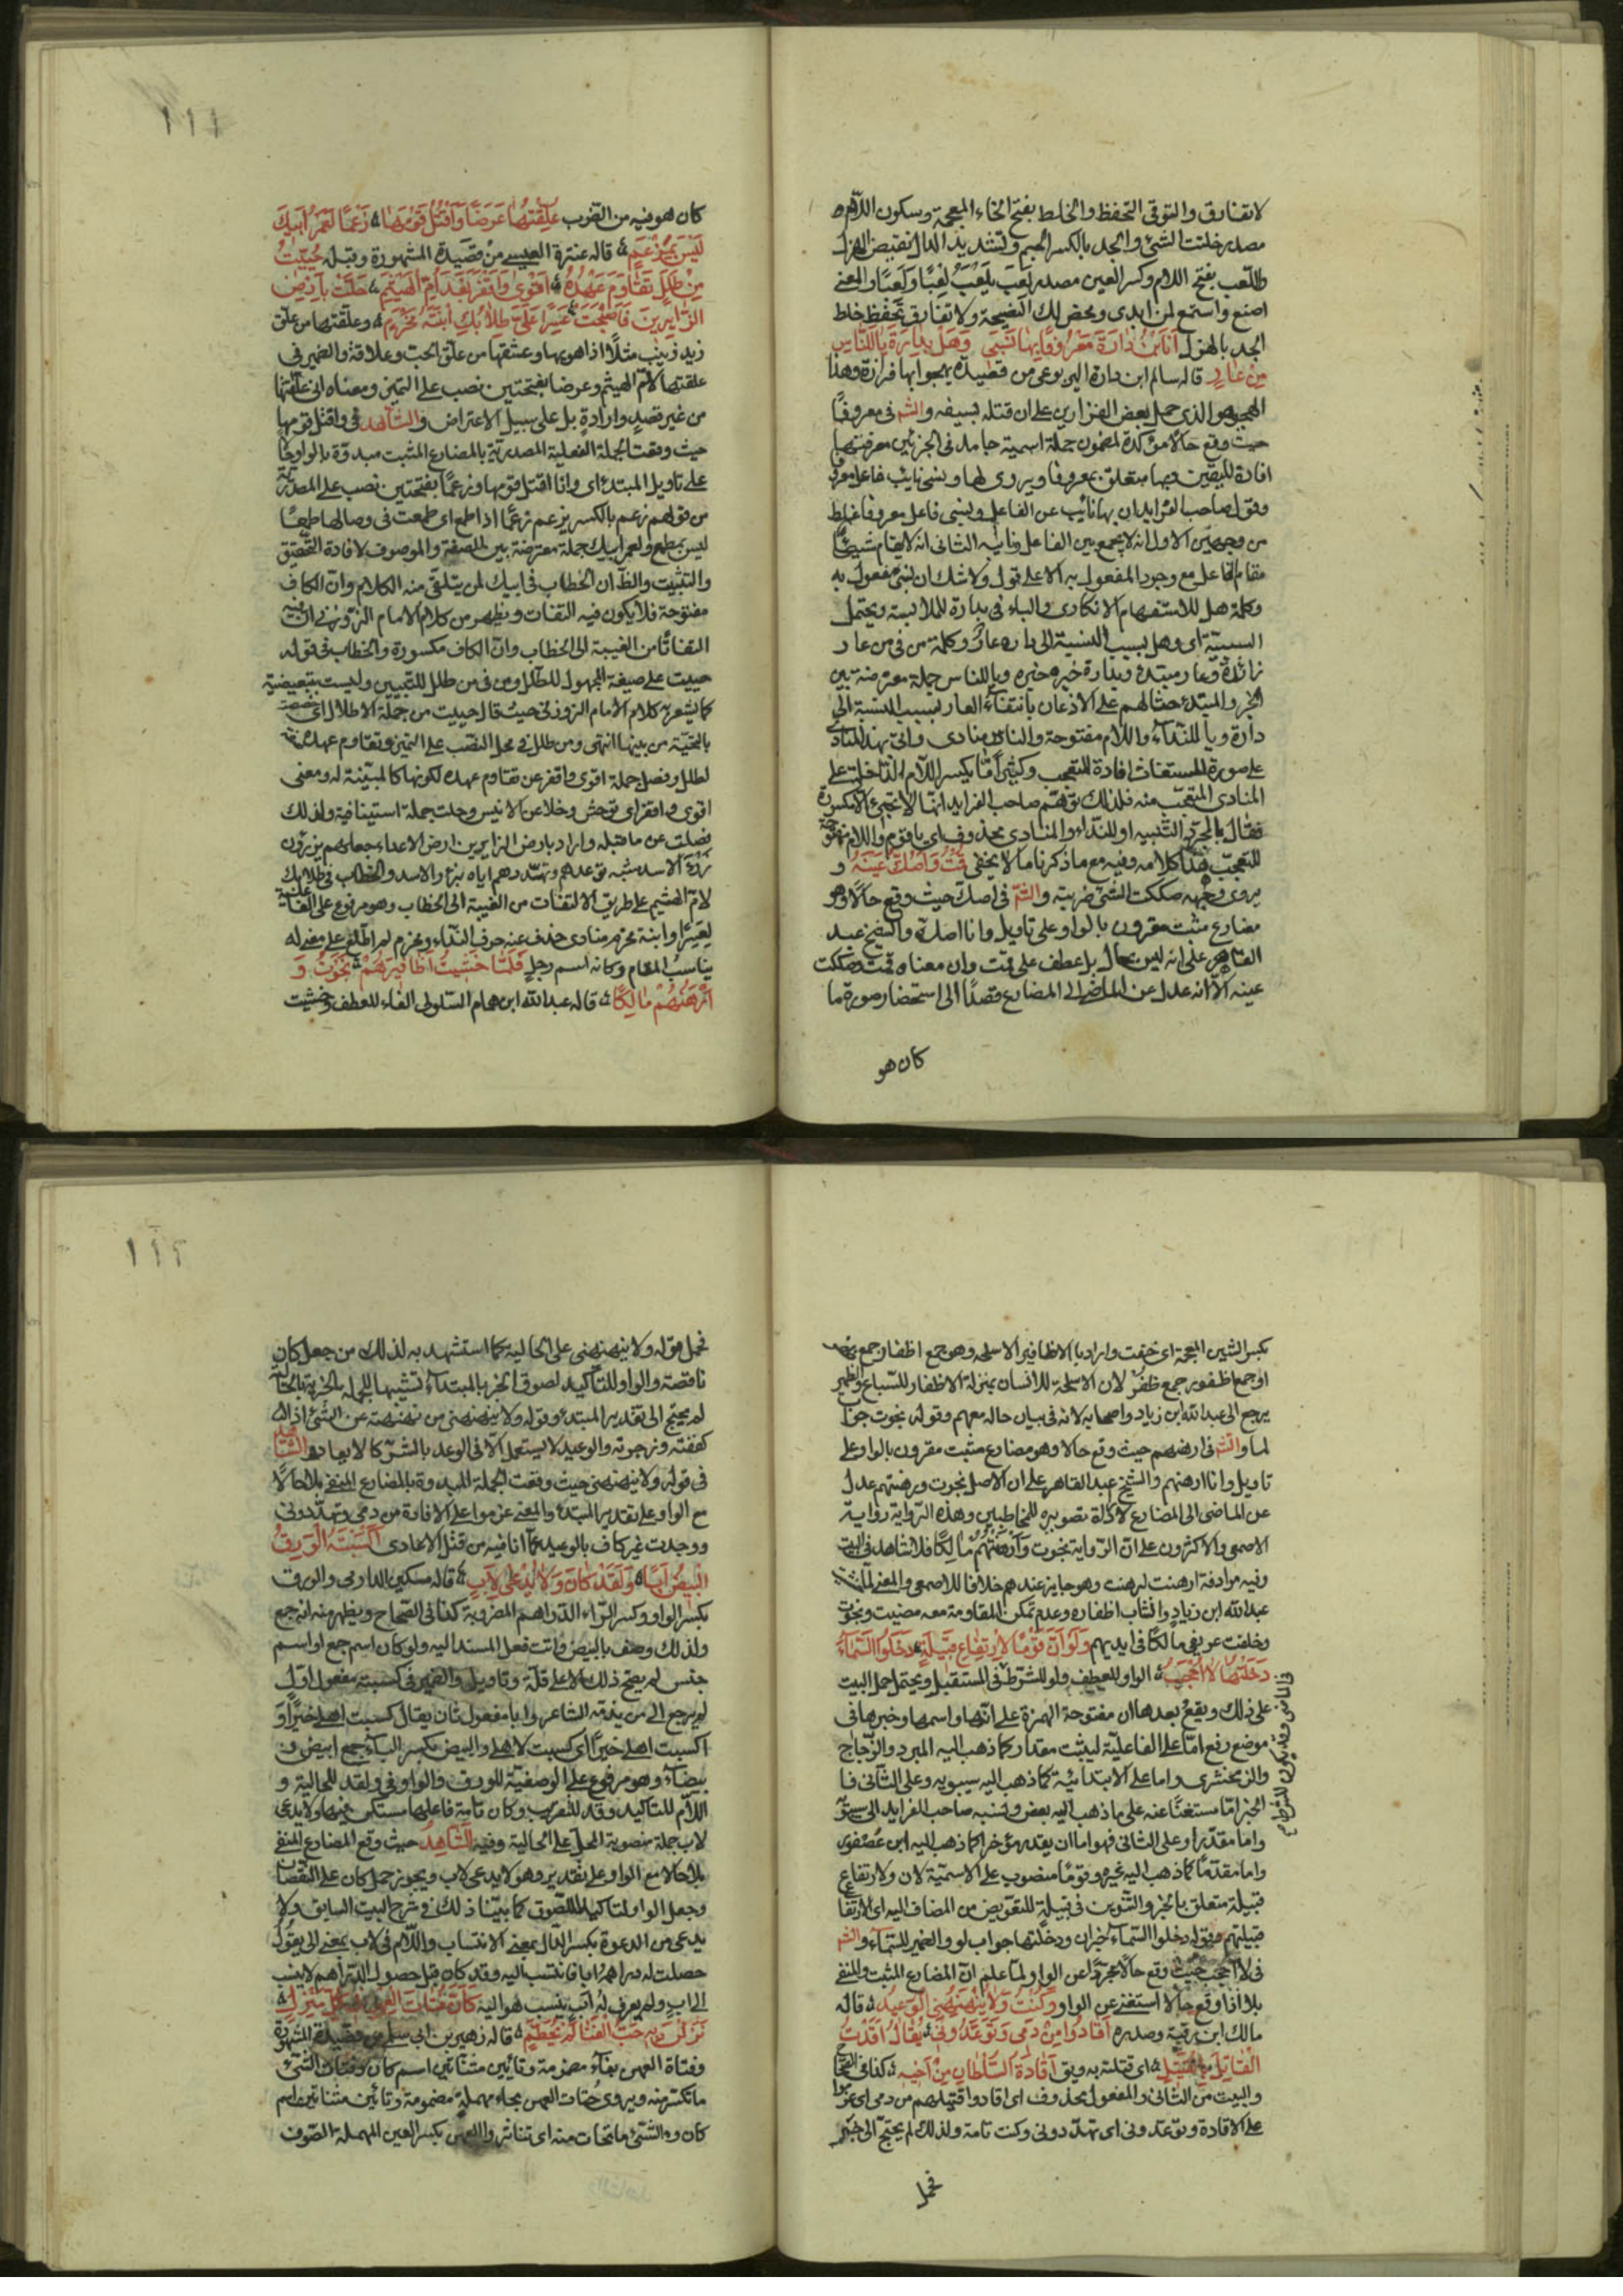 لا تفارق والتوقى التحفظ والخلط بفتح الخاء المعجمة وسكون اللام
مصدر خلت الشئ والجد بالكسر الجيم وتشديد الدال نقيض الهزل
واللعب بفتح اللام وكسر العين مصدر لعب يلعب لعبا ولعبا والمعنى
اصنع واستمع لمن اهدى ومحض لك النصيحة ولا تفارق تحفظ خلط
الجد بالهزل أنا ابن دارة معروفا بها نسبى وهل بدارة يا للناس
من عار قاله سالم ابن دارة اليربوعى من قصيدة يهجو بها فزارة وهذا
الهجو هو الذى حمل بعض الفزاريين على ان قتله بسيفه والشم فى معروفا
حيث وقع حالا مؤكدة لمضمون جملة اسمية جامد فى الجزئين معرفتيهما
افادة لليقين وبها متعلق بمعروفا ويروى لها ونسبى نائب فاعل معروفا
وقول صاحب الفرايد ان بها نائب عن الفاعل ونسبى فاعل معروفا غلط
من وجهين الاول انه لا يجمع بين الفاعل ونايبه الثانى انه لا يقام شيئا
مقام الفاعل مع وجود المفعول به الا على قول ولا شك ان نسبى مفعول به
وكلمة هل للاستفهام الانكارى والباء فى بدارة للملابسة ويحتمل
السببية اى وهل بسبب النسبة الى داره عار وكلمة من فى من عار
زائدة وعار مبتدء وبدارة خبره وياللناس جملة معترضة بين
الخبر والمبتدء حثا لهم على الاذعان بانتفاء العار بسبب النسبة الى
دارة ويا للنداء واللام مفتوحة والناس منادى واتى بهذا المنادى
على صورة المستغاث افادة للتعجب وكثيرا ما يكسر اللام الداخلة على
المنادى المتعجب منه فلذلك توهم صاحب الفرايد انها لا تجئ الا مكسورة
فقال يا لمجرد التنبيه او للنداء والمنادى محذوف اى يا قوم واللام مفتوحة
للتعجب هذا كلامه وفيه مع ما ذكرنا ما لا يخفى قمت وأصك عينه و
يروى وجهه صككت الشئ ضربته والشم فى اصك حيث وقع حالا وهو
مضارع مثبت مقرون بالواو على تاويل وانا اصك والشيخ عبد
القاهر على انه ليس بحال بل عطف على قمت وان معناه قمت وصككت
عينه الا انه عدل عن الماضى الى المضارع قصدا الى استحضار صورة ما
كان هو
١١١
كان هو فيه من الضرب علقتها عرضا وأقتل قومها زعما لعمر أبيك
ليس بمزعم قاله عنترة العبسى من قصيدة المشهورة وقبله حييت
من طلل تقادم عهده أقوى وأقفر بعد أم الهيثم حلت بأرض
الزائرين فأصبحت عسرا على طلابك ابنة مخرم وعلقتها من علق
زيد زينب مثلا اذا هويها وعشقها من علق الحب وعلاقة والضمير فى
علقتها لام الهيثم وعرضا بفتحتين نصب على التميز ومعناه انى علقتها
من غير قصد وارادة بل على سبيل الاعتراض والشاهد فى واقتل قومها
حيث وقعت الجملة الفعلية المصدرية بالمضارع المثبت مبدوة بالواو حالا
على تاويل المبتدء اى وانا اقتل قومها وزعما بفتحتين نصب على المصدرية
من قولهم زعم بالكسر يزعم زعما اذا طمع اى طمعت فى وصالها طمعا
ليس بمطمع ولعمر ابيك جملة معترضة بين الصفة والموصوف لافادة التحقيق
والتثبيت والظ ان الخطاب فى ابيك لمن يتلقى منه الكلام وان الكاف
مفتوحة فلا يكون فيه التفات ويظهر من كلام الامام الزوزنى ان فيه
التفاتا من الغيبة الى الخطاب وان الكاف مكسورة والخطاب فى قوله
حييت على صيغة المجهول للطلل ومن فى من طلل للتبيين وليست بتبعيضية
كما يشعر به كلام الامام الزوزنى حيث قال حييت من جملة الاطلال اى خصصت
بالتحية من بينها انتهى ومن طلل فى محل النصب على التميز وتقادم عهده صفة
لطلل وفصل جملة اقوى واقفر عن تقادم عهده لكونها كالمبينة له ومعنى
اقوى واقفر اى توحش وخلا عن الانيس وحلت جملة استينافية ولذلك
فصلت عن ما قبله واراد بارض الزايرين ارض الاعداء جعلهم يزئرون
زئرة الاسد شبه توعدهم وتهددهم اياه بزءر الاسد والخطاب فى طلابك
لام الهيثم على طريق الالتفات من الغيبة الى الخطاب وهو مرفوع على الفاعلية
لعسرا وابنة مخرم منادى حذف عنه حرف النداء ومخرم لم اطلع على معنى له
يناسب المقام وكانه اسم رجل فلما خشيت أظافيرهم نجوت و
أرهنهم مالكا قاله عبد الله ابن همام السلولى الفاء للعطف وخشيت
بكسر الشين المعجمة اى خفت واراد بالاظافير الاسلحة وهو جمع اظفار جمع ظفر
او جمع اظفور جمع ظفر لان الاسلحة للانسان بمنزلة الاظفار للسباع والضمير
يرجع الى عبد الله ابن زياد واصحابه لانه فى بيان حاله معهم وقوله نجوت جواب
لما والشم فى ارهنهم حيث وقع حالا وهو مضارع مثبت مقرون بالواو على
تاويل وانا ارهنهم والشيخ عبد القاهر على ان الاصل نجوت ورهنتهم عدل
عن الماضى الى المضارع لارادة تصويره للمخاطبين وهذه الرواية رواية
الاصمعى والاكثرون على ان الرواية نجوت وأرهنتهم مالكا فلا شاهد فى البيت
وفيه مرادفة ارهنت لرهنت وهو جايز عندهم خلافا للاصمعى والمعنى لما خشيت
عبد الله ابن زياد وانشاب اظفاره وعدم تمكن المقاومة معه مضيت ونجوت
وخلفت عريفى مالكا فى ايديهم ولو أن قوما لارتفاع قبيلة دخلوا السماء
دخلتها لا أحجب الواو للعطف ولو للشرط فى المستقبل ويحتمل حمل البيت
على ذلك ويقع بعدها ان مفتوحة الهمزة على انها واسمها وخبرها فى
موضع رفع اما على الفاعلية لثبت مقدار كما ذهب اليه المبرد والزجاج
والزمخشرى واما على الابتدائية كما ذهب اليه سيبويه وعلى الثانى فا
لخبر اما مستغنا عنه على ما ذهب اليه بعض ونسبه صاحب الفرايد الى سيبويه
واما مقدر او على الثانى فهو اما ان يقدر مؤخرا كما ذهب اليه ابن عصفور
واما مقدما كما ذهب اليه غيره وقوما منصوب على الاسمية لان ولارتفاع
قبيلة متعلق بالخبر والتنوين فى قبيلة للتعويض من المضاف اليه اى لارتفاع
قبيلتهم وقوله دخلوا السماء خبر ان ودخلتها جواب لو والضمير للسماء والشم
فى لا احجب حيث وقع حالا مجردا عن الواو ولما علم ان المضارع المثبت والمنفى
بلا اذا وقع حالا استغنى عن الواو وكنت ولا ينهنهنى الوعيد قاله
مالك ابن رقية وصدره أقادوا من دمى وتوعدونى يقال أقدت
القاتل بالقتيل اى قتلته به ويق أقاده السلطان من أخيه كذا فى الصحاح
والبيت من الثانى والمفعول محذوف اى اقادوا قتيلهم من دمى اى عزموا
على الاقادة وتوعدونى اى تهددونى وكنت تامة ولذلك لم يحتج الى خبر
فحمل
١١٢
فحمل قوله ولا ينهنهنى على الحالية كما استشهد به لذلك من جعل كان
ناقصة والواو للتاكيد لصوق الخبر بالمبتداء تشبيها للجملة الخبرية بالحالية
لم يحتج الى تقدير المبتدء وقوله ولا ينهنهنى من نهنهته عن الشئ اذا
كففته وزجرته والوعيد لا يستعمل الا فى الوعد بالشر كالايعاد والشاهد
فى قوله ولا ينهنهنى حيث وقعت الجملة المبدوة بالمضارع المنفى بلا حالا
مع الواو على تقدير المبتدء والمعنى عزموا على الاقادة من دمى وتهددونى
ووجدت غير كاف بالوعيد عما انا فيه من قتل الاعادى أكسبته الورق
البيض أبا ولقد كان ولا يدعى لأب قاله مسكين الدارمى والورق
بكسر الواو وكسر الراء الدراهم المضروبة كذا فى الصحاح ويظهر منه انه جمع
ولذلك وصف بالبيض وانث فعل المسند اليه ولو كان اسم جمع او اسم
جنس لم يصح ذلك الا على قلة وتاويل والضمير فى كسبته مفعول اول
له يرجع الى من يذمه الشاعر وابا مفعول ثان يقال كسبت اهلى خيرا و
اكسبت اهلى خيرا اى كسبت لاهلى والبيض بكسر الباء جمع ابيض و
بيضاء وهو مرفوع على الوصفية للورق والواو فى ولقد للحالية و
اللام للتاكيد وقد للتقريب وكان تامة فاعلها مستكن فيها ولا يدعى
لاب جملة منصوبة المحل على الحالية وفيه الشاهد حيث وقع المضارع المنفى
بلا حالا مع الواو على تقدير وهو لا يدعى لاب ويجوز حمل كان على النقصان
وجعل الواو لتاكيد اللصوق كما بينا ذلك فى شرح البيت السابق ولا
يدعى من الدعوة بكسر الدال بمعنى الانتساب واللام فى لاب بمعنى الى يقول
حصلت له دراهم ابا فانتسب اليه وقد كان قبل حصول الدراهم لا ينسب
الى اب ولم يعرف له اب ينسب هو اليه كأن فتات العهن فى كل منزل
نزلن به حب الفنا لم يحطم قاله زهير بن ابى سلمى من قصيدة المشهورة
وفتاة العهن بفاء مضمومة وتائين مثناتين اسم كان وفتات الشئ
ما تكسر منه ويروى حتات العهن بحاء مهملة مضمومة وتائين مثناتين اسم
كان وه الشئ ما تحات منه اى تناثر والعهن بكسر العين المهملة الصوف